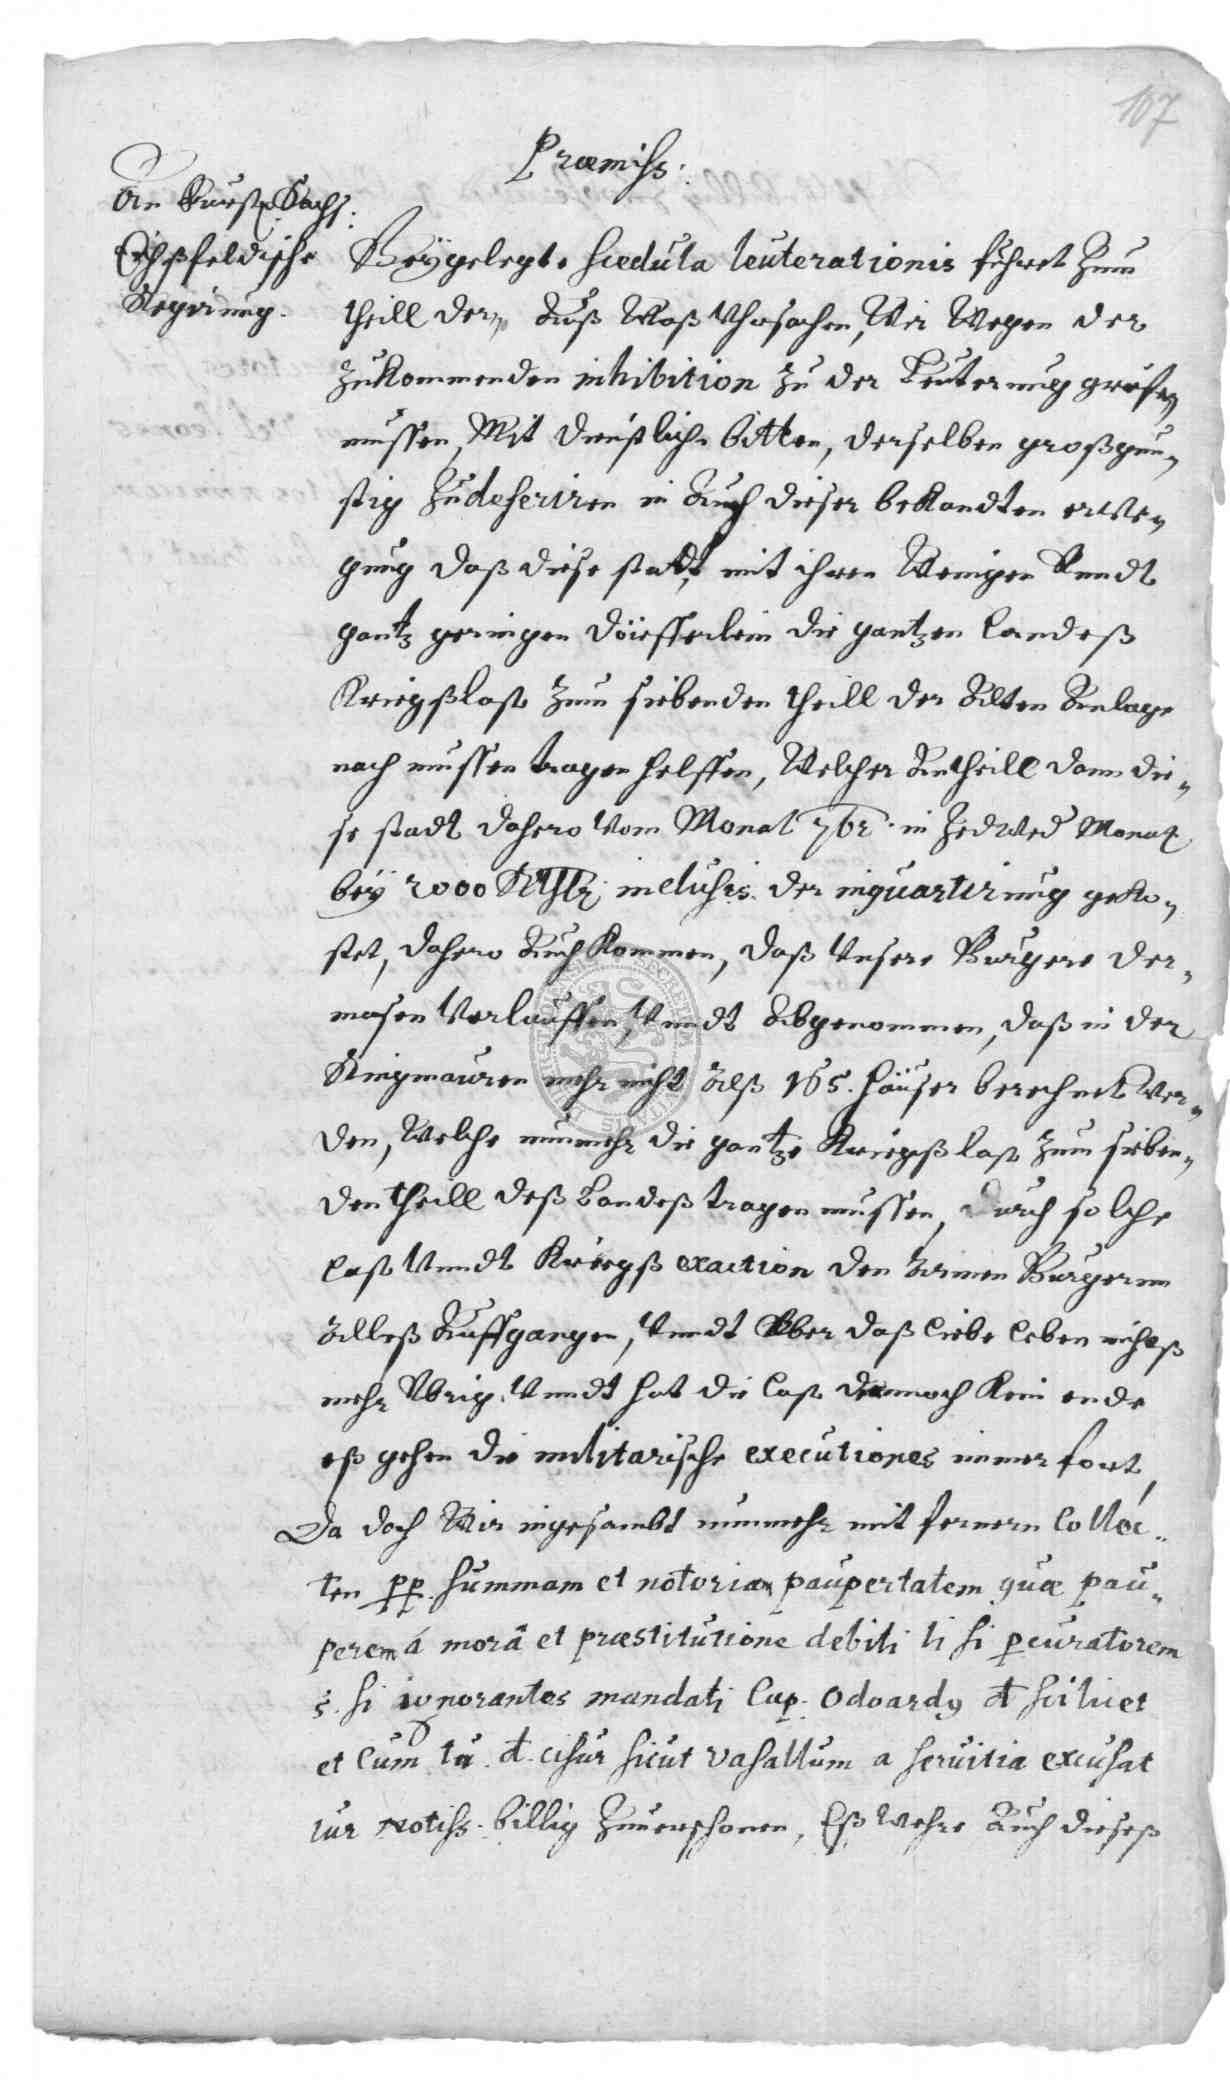 107
Præmiss:
An Furstl. Sachs.
Eichßfeldische
Regirung.
Beÿgelegte scedula leuterationis führet zum
theill der, auß waß Uhrsachen, Wir Wegen der
zukommenden inhibition zu der Leuternug greifen
mussen, Mit dienstlich bitten, derselben großgun„
stig zu deferiren in Auch dieser bekandten erwe„
gung daß diese stadt, mit ihren Wenigen Vundt
gantz geringen dörfferlein die gantzen Landeß
Kriegßlast zum siebenden theill der Alten Anlage
nach mussen tragen helffen, Welcher Antheill dann die„
se stadt dahero Vom Monat 7br. in Jedwed Monat
beÿ 2000 Rthlr. inclusis. der inquartirung geko„
stet, dahero Auch Kommen, daß Unsere Burgere der„
masen Verlauffen, Vundt Abgenommen, daß in der
Ringmauren mehr nicht Alß 165. häuser berechnet wer„
den, Welche nunmehr die gantze Kriegßlast zum sieben„
den theill deß Landeß tragen mussen, durch solche
last Vundt Kriegß exaction den Armen Burgern
Alleß Auffgangen, Vundt Uber daß liebe leben nichtß
mehr Ubrig, Vundt hat die last dennoch Kein ende
eß gehen die militarische executiones immer fort,
Da doch Wir ingesambt nunmehr mit fernern Collec„
ten pp. summam et notoriam paupertatem quæ pau„
perem á morâ et præstitutione debiti li si pcuratorem
s. si ignorantes mandati Cap. Odoardg d scilicet
et Cum tu. d. cisur sicut vasallum a seruitia excusat
iur notiss. billig zuuerschonen, Eß wehre Auch dieseß